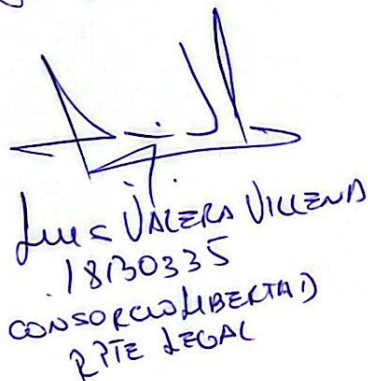 Luis VALERA VILLENA
18130335
CONSORCIO LIBERTAD
RPTE LEGAL